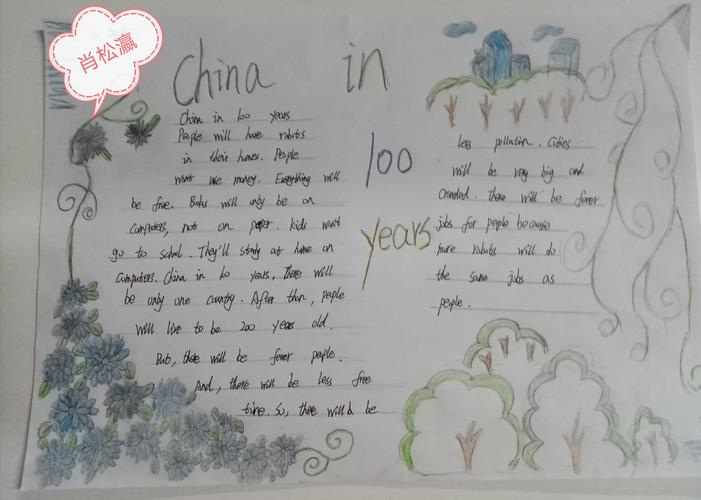 肖松瀛
China in
100
years
China in 100 years
People will have robots
in their homes. People
wont use money. Everything will
be free. Books will only be on
computers, not on paper. kids wont
go to school. They'll study at home on
computers. China in 100 years, There will
be only one country. After than, people
will live to be 200 years old.
But, there will be fewer people.
And, there will be less free
time. So, there will be
less pollution. Cities
will be very big and
crowded. There will be fewer
jobs for people because
more robots will do
the same jobs as
people.